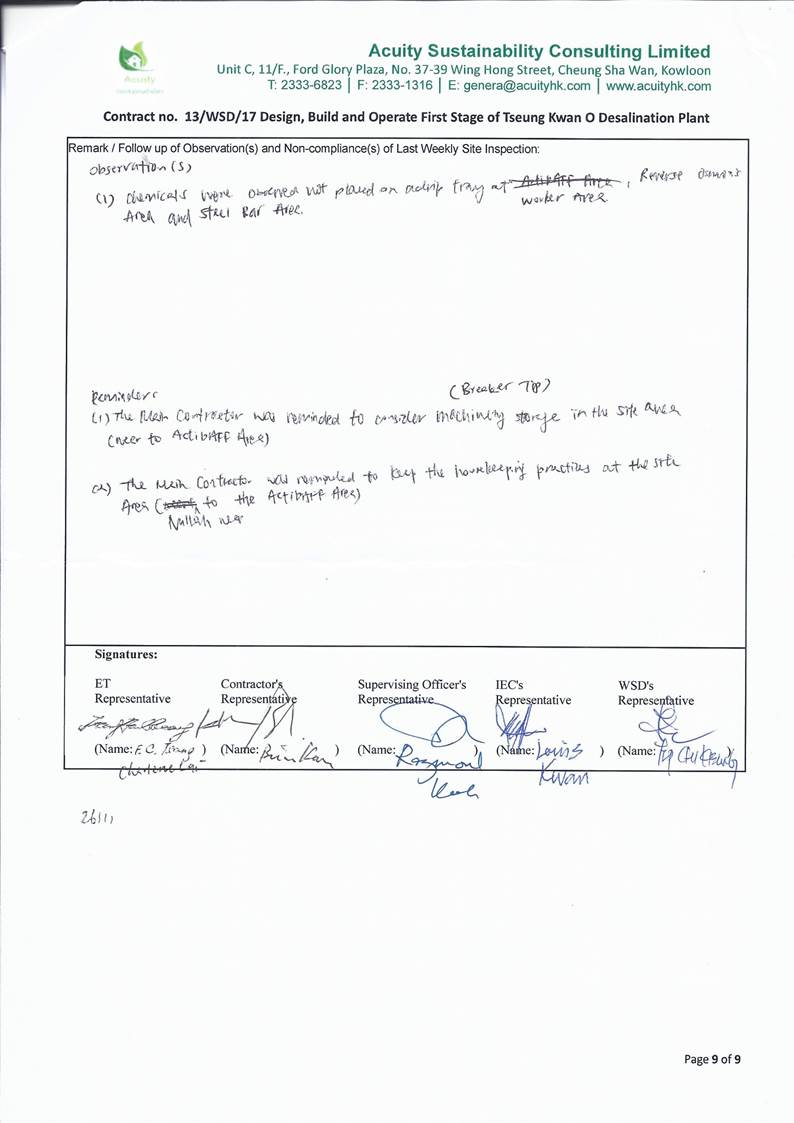 Acuity
Acuity Sustainability Consulting Limited
Unit C, 11/F., Ford Glory Plaza, No. 37-39 Wing Hong Street, Cheung Sha Wan, Kowloon
T: 2333-6823 | F: 2333-1316 | E: genera@acuityhk.com | www.acuityhk.com
Contract no. 13/WSD/17 Design, Build and Operate First Stage of Tseung Kwan O Desalination Plant
Remark / Follow up of Observation(s) and Non-compliance(s) of Last Weekly Site Inspection:
Observation(s)
(1) Chemicals were observed not placed on a drip tray at ActibAFF Area, Reverse Osmosis
worker Area
Area and Steel Bar Area.
Reminders
(Breaker Tip)
(1) The Main Contractor was reminded to consider machinery storage in the site area
(near to ActibAFF Area)
(2) The Main Contractor was reminded to keep the housekeeping practices at the site
Area ( to the ActibAFF Area)
Nullah near
Signatures:
ET Contractor's Supervising Officer's IEC's WSD's
Representative Representative Representative Representative Representative
(Name: F.C. Tsang ) (Name: ) (Name: Raymond ) (Name: Louis ) (Name:
Kwan
26/11
Page 9 of 9